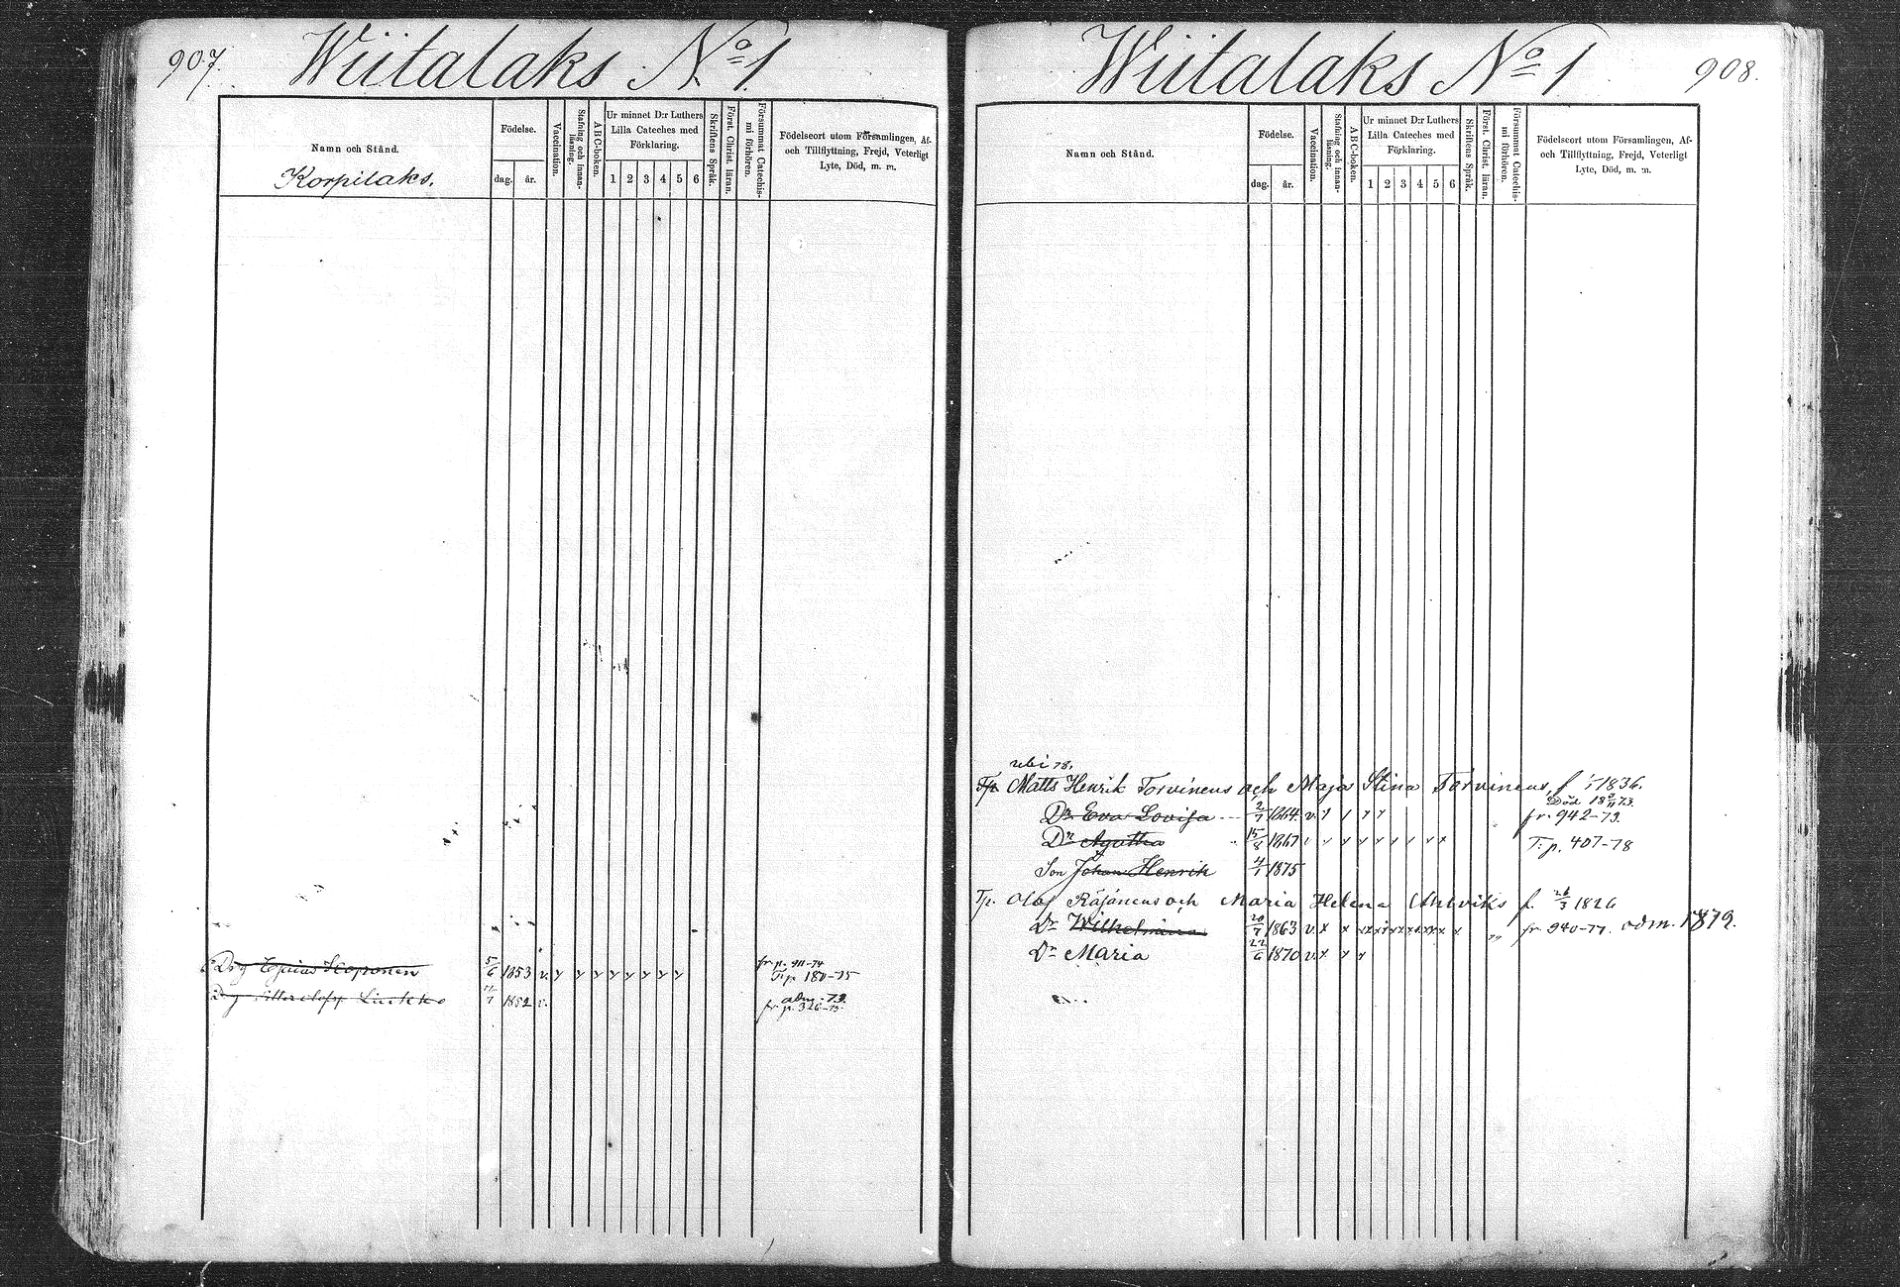 907.
Wiitalaks No 1.
Namn och Stånd.
Korpilaks.
Födelse.
dag. år.
Vaccination.
Stafning och innanläsning.
ABC-boken.
Ur minnet D:r Luthers
Lilla Cateches med
Förklaring.
1 2 3 4 5 6
Skriftens Språk.
Först. Christ. läran.
Försummat Catechismi förhören.
Födelseort utom Församlingen, Af-
och Tillflyttning, Frejd, Veterligt
Lyte, Död, m. m.
Drg 5/6 1853 v. x x x x x x x x fr. p. 911-74
T. p. 180-75
Drg 1852 v. adm. 73.
fr. p. 326-73.
908.
Wiitalaks No 1
Namn och Stånd.
Födelse.
dag. år.
Vaccination.
Stafning och innanläsning.
ABC-boken.
Ur minnet D:r Luthers
Lilla Cateches med
Förklaring.
1 2 3 4 5 6
Skriftens Språk.
Först. Christ. läran.
Försummat Catechismi förhören.
Födelseort utom Församlingen, Af-
och Tillflyttning, Frejd, Veterligt
Lyte, Död, m. m.
Tp. Matts Henrik Torvinens och Maja Stina Torvinens, f. 1836.
Död
Dr Eva Lovisa 2/7 1864 v. fr. 942-73.
Dr Agatha 15/8 1867 T. p. 407-78
Son Johan Henrik 1875
Tp. Olof Räjänens och Maria Helena f. 26/3 1826
Dr Wilhelmina 20/7 1863 v. x x fr. 940-77. adm. 1879.
Dr Maria 22/6 1870 v. x x x